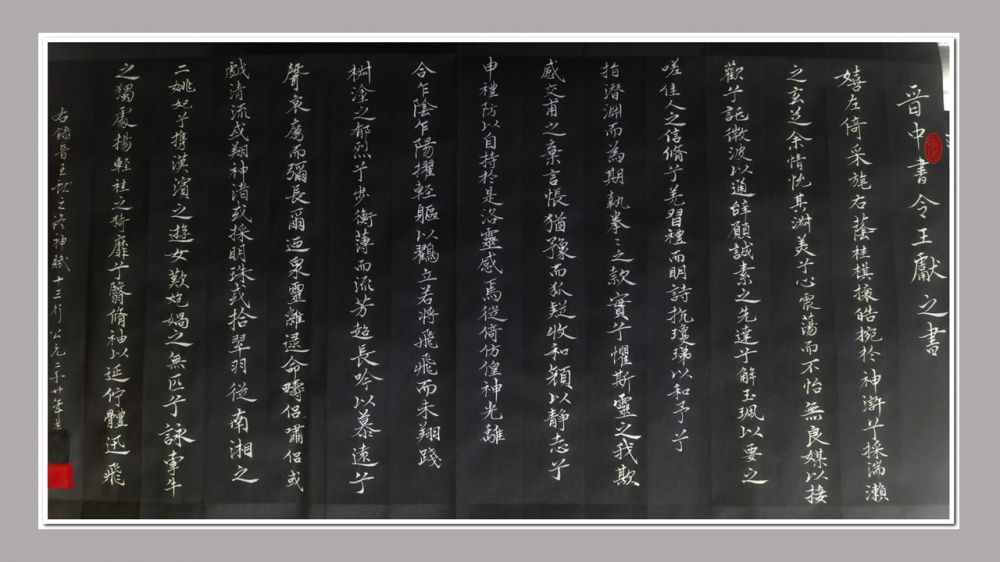 晉中書令王獻之書
嬉左倚采旄右蔭桂棋攘皓捥於神滸兮採湍瀨
之玄芝余情悅其淑美予心震蕩而不怡無良媒以接
歡兮託微波以通辝願誠素之先達兮解玉珮以要之
嗟佳人之信脩兮羌習禮而明詩抗瓊珶以和予兮
指潛淵而為期執拳之之款實兮懼斯靈之我欺
感交甫之棄言悵猶豫而狐疑收和顏以静志兮
申禮防以自持於是洛靈感焉徙倚仿偟神光離
合乍陰乍陽擢輕軀以鶴立若將飛飛而未翔踐
椒塗之郁烈兮步衡薄而流芳超長吟以慕遠兮
聲哀厲而彌長爾迺衆靈雜遝命疇侶嘯侶或
戲清流或翔神渚或採明珠或拾翠羽從南湘之
二姚妃兮攜漢濱之遊女歎炮媧之無匹兮詠牽牛
之獨處揚輕袿之猗靡兮翳脩袖以延佇體迅飛
右錄晉王獻之洛神賦十三行 公元二零廿年